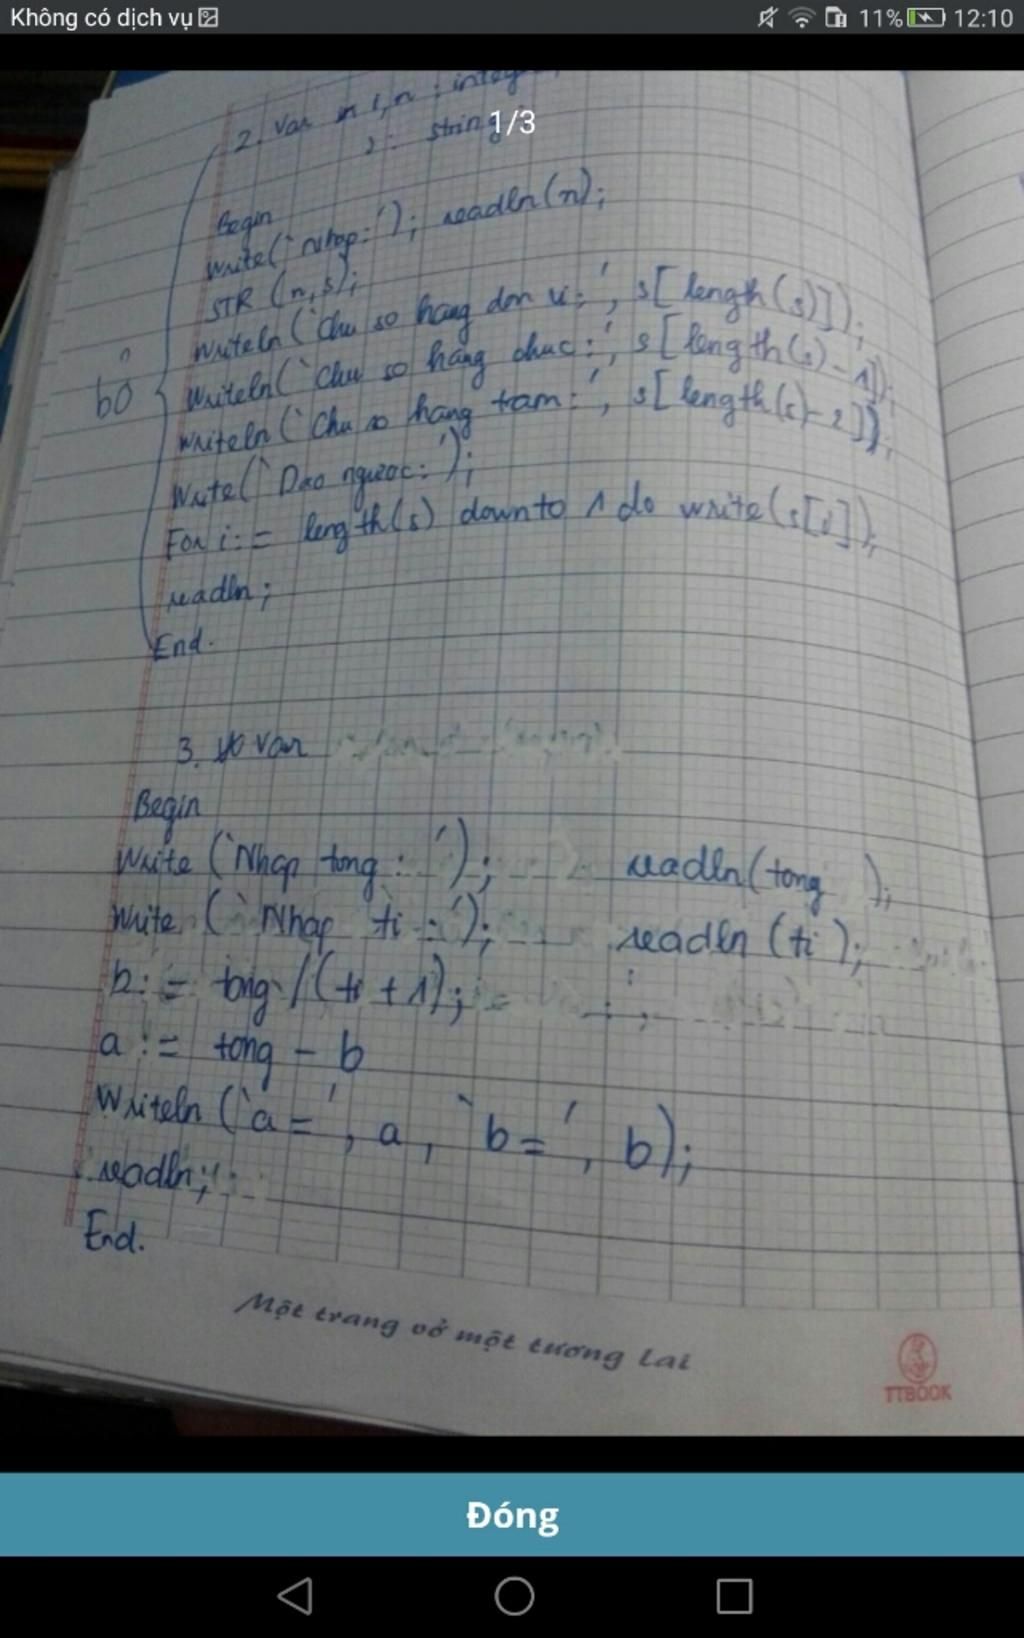 Không có dịch vụ
11% 12:10
1/3
2. Var i, n : integ
: string
Begin
Write(`Nhap:'); readln(n);
STR (n,s);
Writeln(`Chu so hang don vi:', s[length(s)]);
bo
Writeln(`Chu so hang chuc:', s[length(s)-1]);
Writeln(`Chu so hang tram:', s[length(s)-2]);
Write(`Dao nguoc:');
For i:= length(s) downto 1 do write(s[i]);
readln;
End.
3. Var
Begin
Write (`Nhap tong : '); readln(tong );
Write (`Nhap ti :'); readln (ti);
b:= tong /(ti + 1);
a := tong - b
Writeln (`a=', a, `b=', b);
readln;
End.
Một trang vở một tương lai
TTBOOK
Đóng